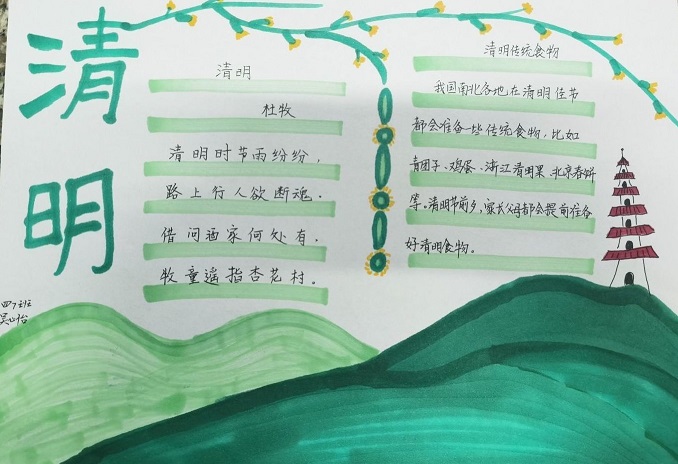 清明
清明
杜牧
清明时节雨纷纷，
路上行人欲断魂。
借问酒家何处有，
牧童遥指杏花村。
清明传统食物
我国南北各地在清明佳节
都会准备一些传统食物，比如
青团子、鸡蛋、浙江清明果、北京春饼
等。清明节前夕，家长父母都会提前准备
好清明食物。